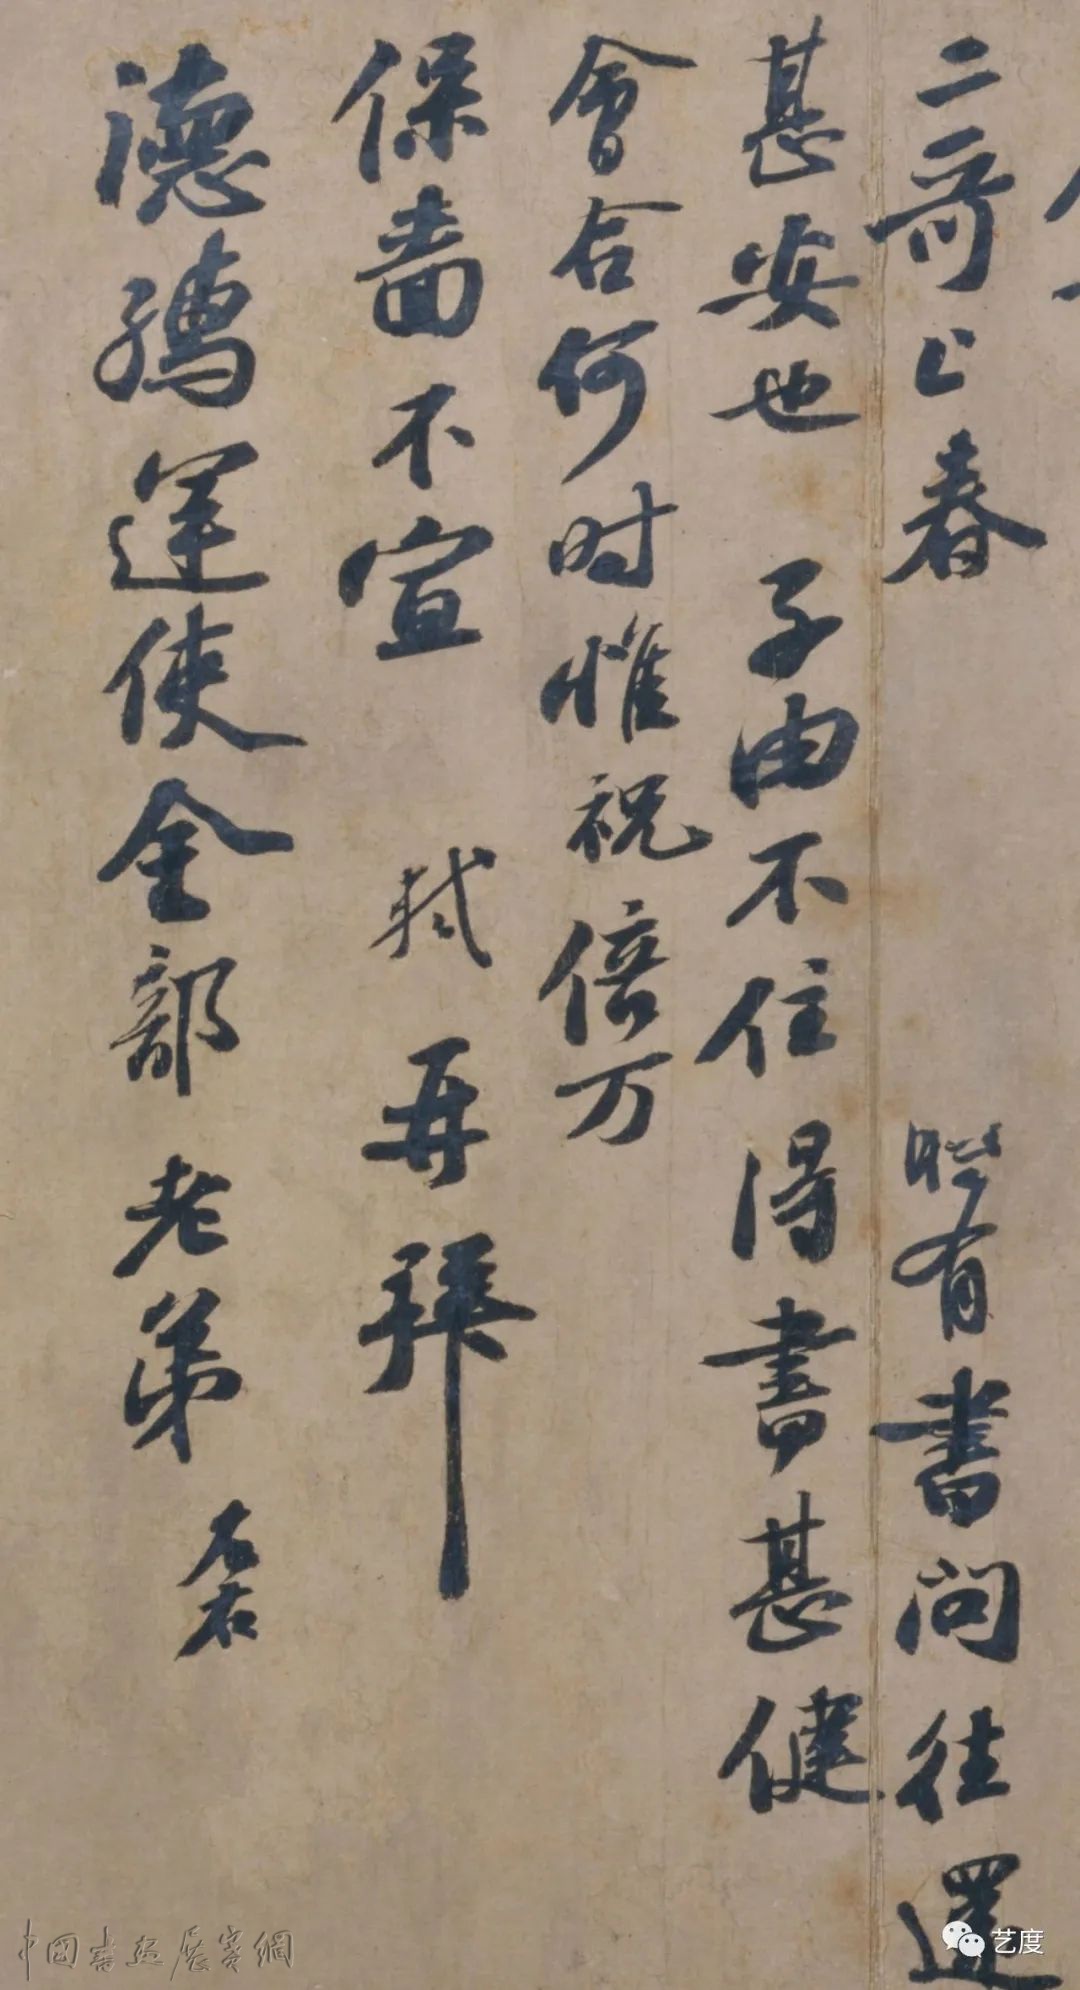 二哥上春　時有書問往還
甚安也　子由不住得書甚健
會合何时惟祝倍万
保嗇不宣　軾再拜
德孺運使金部老弟　左右
中國書畫展賽網
艺度